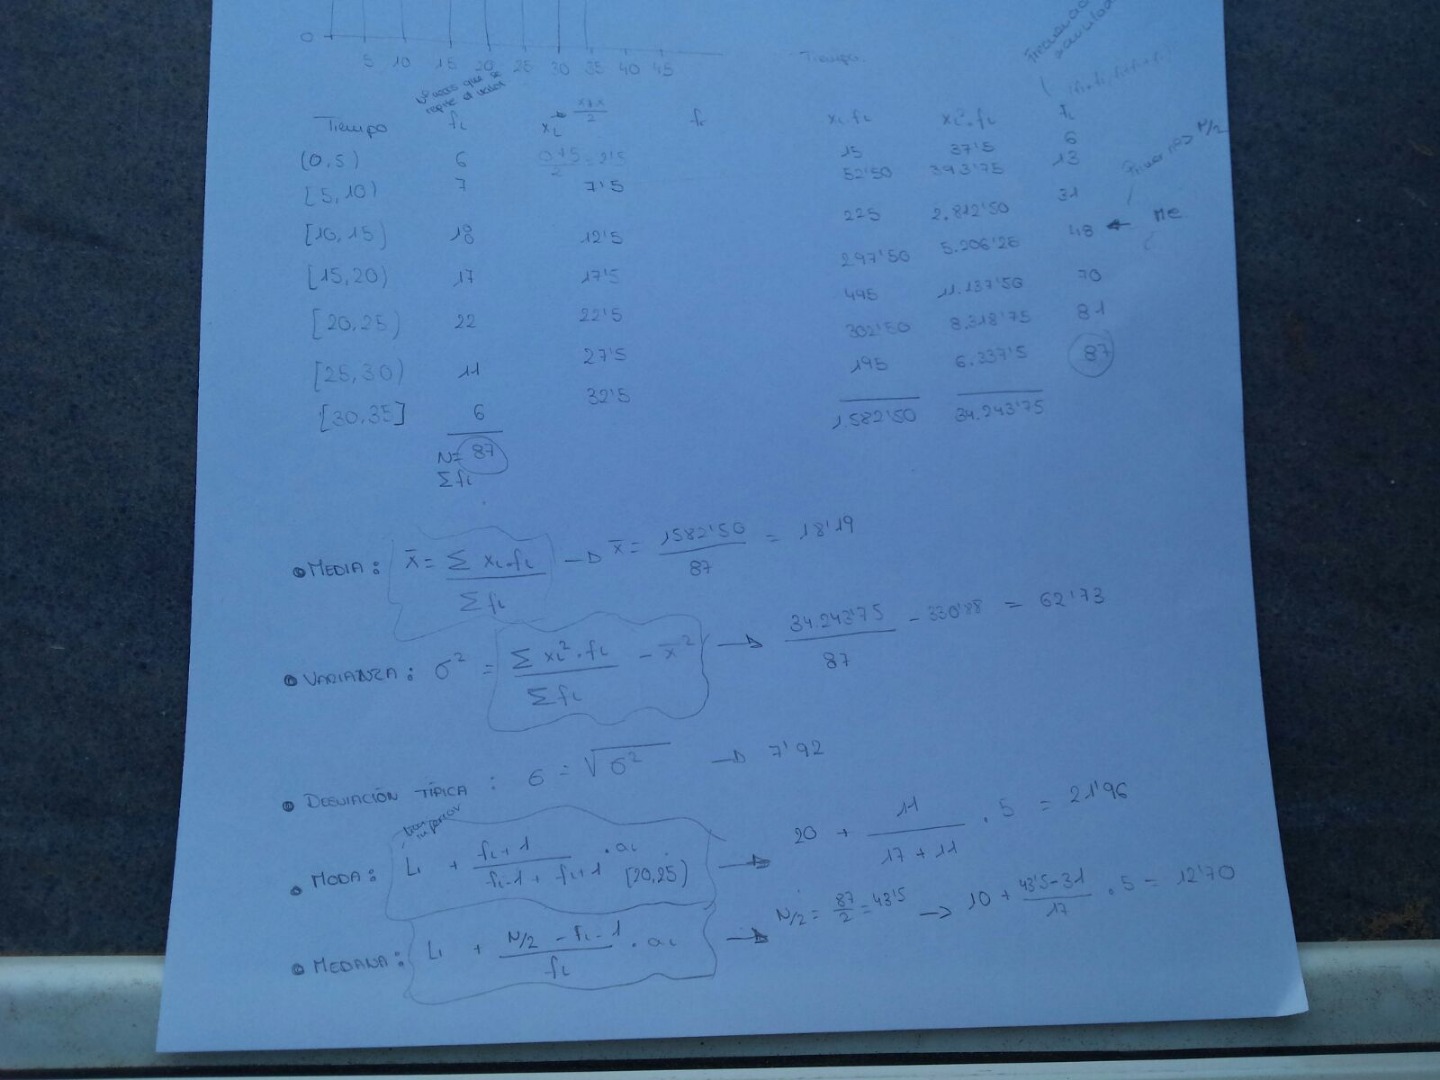 0
5 10 15 20 25 30 35 40 45 Tiempo
Frecuencia acumulada
Nº veces que se repite el valor
Tiempo fi xi → x+x/2 fi xi.fi xi².fi fi
(0,5) 6 0+5/2 = 2'5 15 37'5 6
[5,10) 7 7'5 52'50 393'75 13
[10,15) 18 12'5 225 2.812'50 31
[15,20) 17 17'5 297'50 5.206'25 48 ← Me
[20,25) 22 22'5 495 11.137'50 70
[25,30) 11 27'5 302'50 8.318'75 81
[30,35] 6 32'5 195 6.337'5 87
N= 87 1.582'50 34.243'75
Σfi
N/2
MEDIA: x̄ = Σ xi.fi / Σ fi → x̄ = 1582'50 / 87 = 18'19
VARIANZA: σ² = Σ xi².fi / Σ fi - x̄² → 34.243'75 / 87 - 330'88 = 62'73
DESVIACIÓN TÍPICA: σ = √σ² → 7'92
inferior
MODA: Li + fi+1 / fi-1 + fi+1 . ai [20,25) → 20 + 11 / 17 + 11 . 5 = 21'96
MEDIANA: Li + N/2 - fi-1 / fi . ai → N/2 = 87/2 = 43'5 → 10 + 43'5-31 / 17 . 5 = 12'70